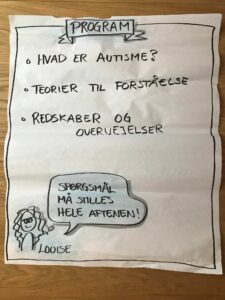 PROGRAM
• HVAD ER AUTISME?
• TEORIER TIL FORSTÅELSE
• REDSKABER OG
OVERVEJELSER
SPØRGSMÅL
MÅ STILLES
HELE AFTENEN!
LOUISE